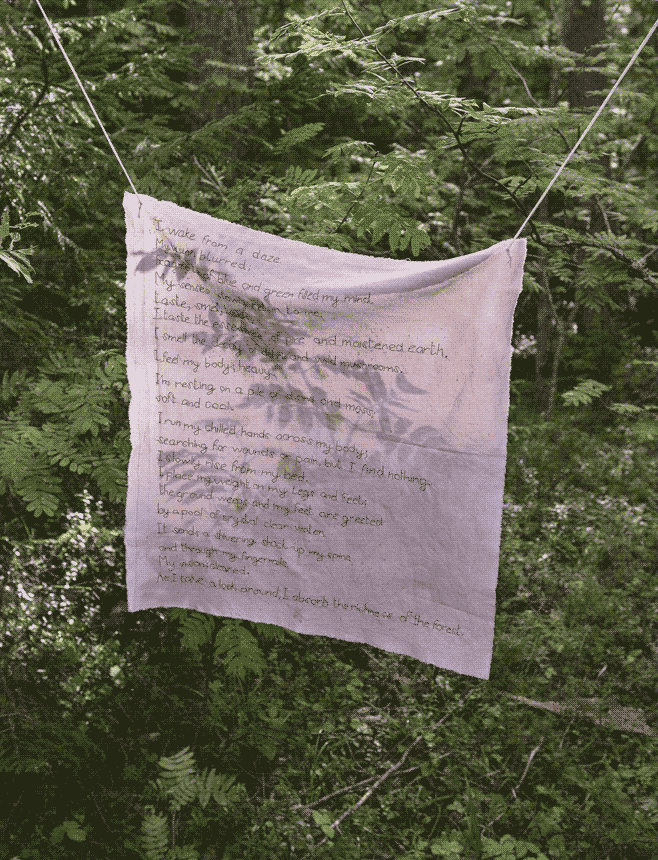 I wake from a daze.
My vision blurred;
of blue and green filled my mind.
My senses
Taste, smell
I taste the of pine and moistened earth.
I smell the and wild mushrooms.
I feel my body; heavy.
I'm resting on a pile of and moss;
soft and cool.
I run my chilled hands across my body;
searching for wounds or pain, but I find nothing.
I slowly rise from my bed.
I place my weight on my legs and feet;
the ground weeps and my feet are greeted
by a pool of crystal clear water.
It sends a shivering shock up my spine
and through my fingernails.
My vision cleared.
As I take a look around, I absorb the richness of the forest.